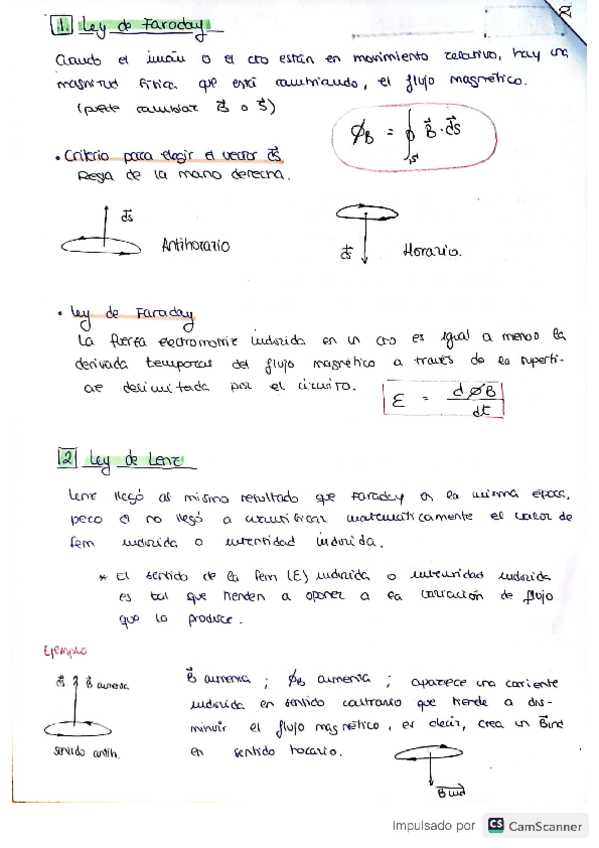 2
1. Ley de Faraday
Cuando el imán o el cto están en movimiento relativo, hay una
magnitud física que está cambiando, el flujo magnético.
(puede cambiar B⃗ o S⃗)
ϕB = ∮s B⃗ · ds⃗
• Criterio para elegir el vector ds⃗
Regla de la mano derecha.
ds⃗
Antihorario
ds⃗
Horario.
• Ley de Faraday
La fuerza electromotriz inducida en un cto es igual a menos la
derivada temporal del flujo magnético a través de la superfi-
cie delimitada por el circuito.
ε = dϕB / dt
2 Ley de Lenz
Lenz llegó al mismo resultado que Faraday en la misma época,
pero él no llegó a cuantificar matemáticamente el valor de
fem inducida o intentidad inducida.
* El sentido de la fem (ε) inducida o intensidad inducida
es tal que tienden a oponer a la variación de flujo
que la produce.
Ejemplo
B⃗ aumenta ; ϕB aumenta ; aparece una corriente
inducida en sentido contrario que tiende a dis-
minuir el flujo magnético, es decir, crea un B⃗ind
en sentido horario.
ds⃗ B⃗ aumenta
sentido antih.
B⃗ ind
Impulsado por CS CamScanner